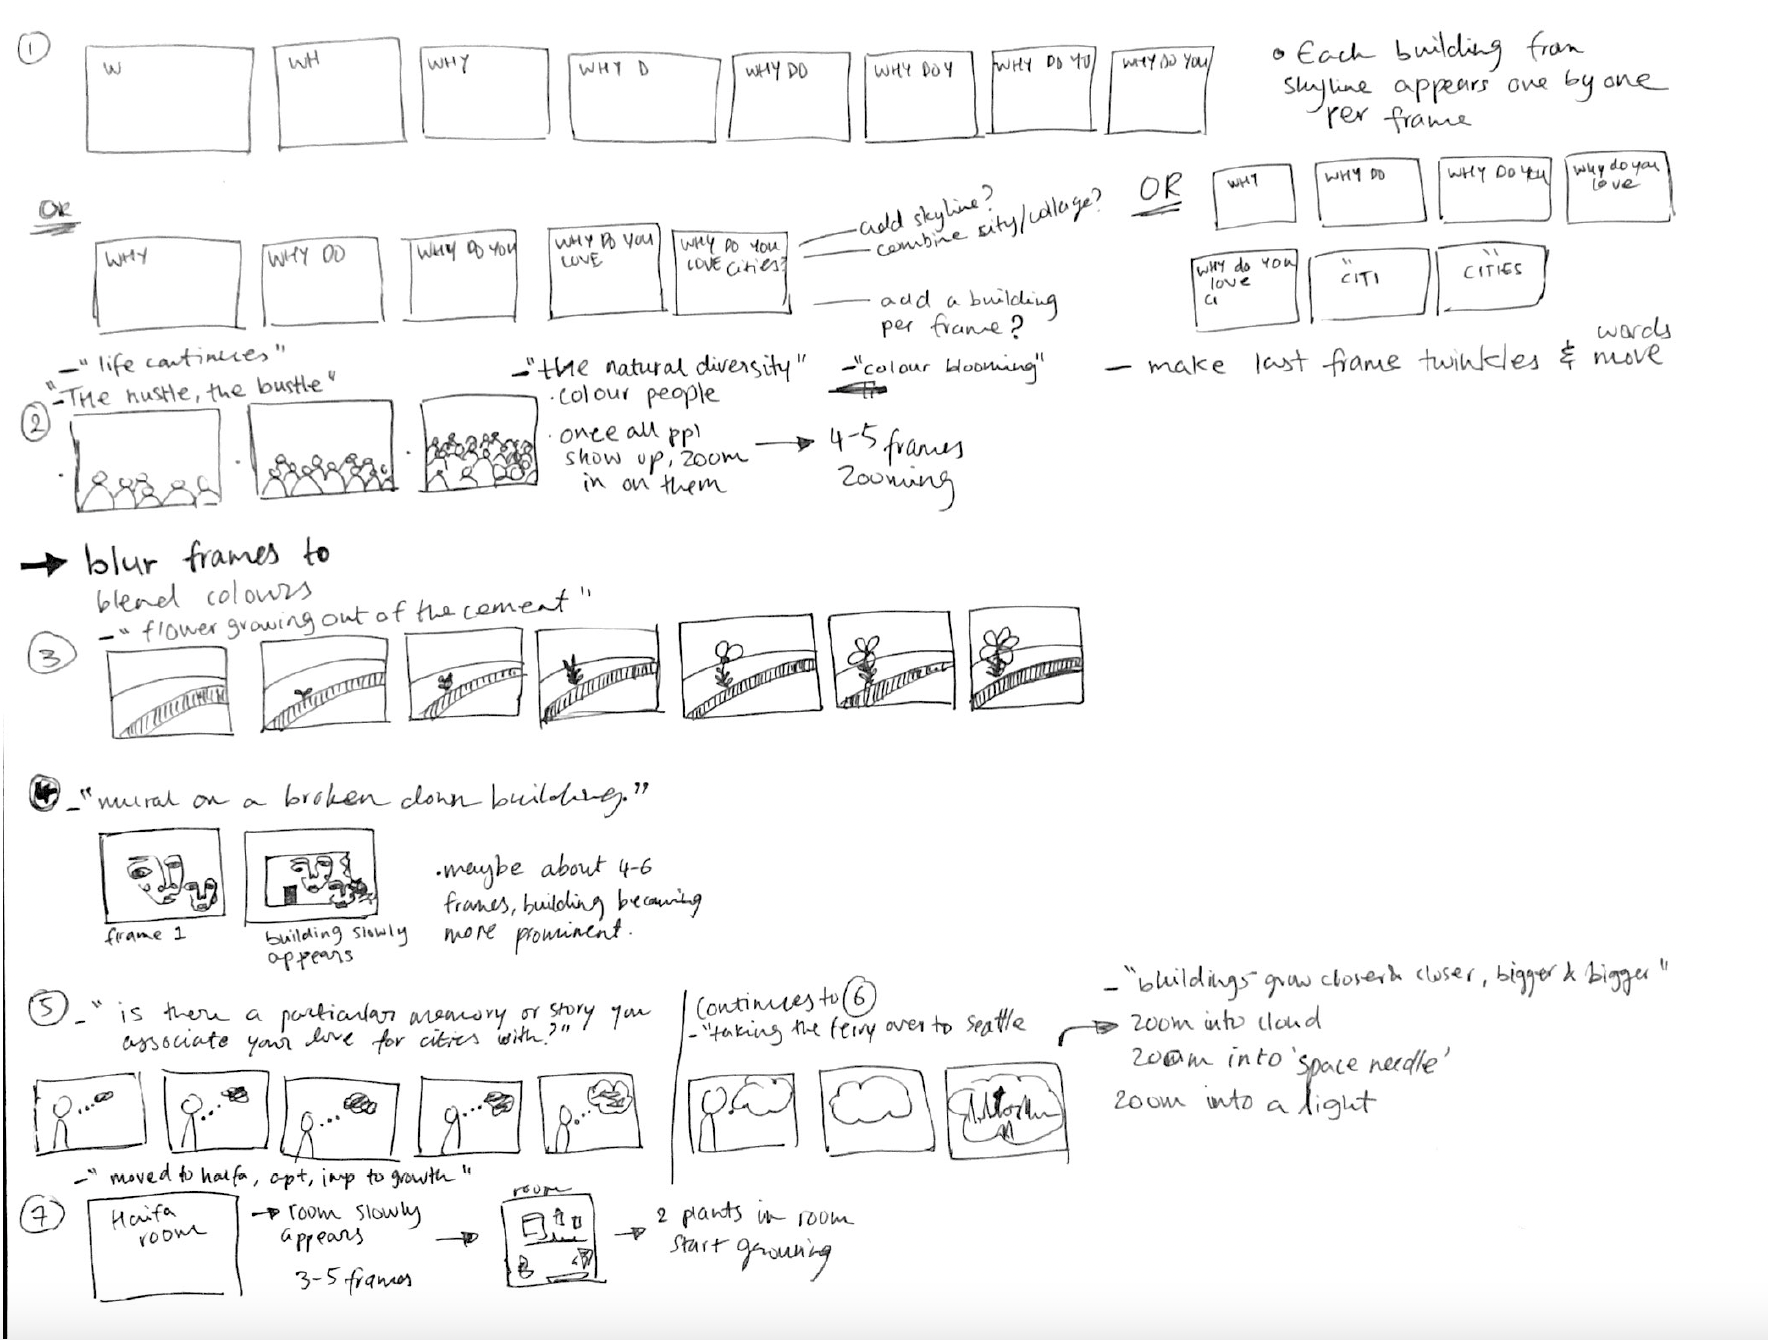 1
W
WH
WHY
WHY D
WHY DO
WHY DO Y
WHY DO YU
WHY DO YOU
Each building from
skyline appears one by one
per frame
OR
WHY
WHY DO
WHY DO YOU
WHY DO YOU
LOVE
WHY DO YOU
LOVE cities?
add skyline?
combine sity/collage?
add a building
per frame?
OR
WHY
WHY DO
WHY DO YOU
Why do you
love
WHY do YOU
love
CI
CITI
CITIES
- make last frame twinkles & words move
- "life continues"
- "The hustle, the bustle"
2
- "the natural diversity"
· colour people
· once all ppl
show up, zoom
in on them
- "colour blooming"
4-5 frames
zooming
blur frames to
blend colours
3
- "flower growing out of the cement"
4
- "mural on a broken down building."
frame 1
building slowly
appears
· maybe about 4-6
frames, building becoming
more prominent.
5
- "is there a particular memory or story you
associate your love for cities with?"
Continues to 6
- "taking the ferry over to Seattle
- "buildings grow closer & closer, bigger & bigger"
zoom into cloud
zoom into 'space needle'
zoom into a light
- "moved to haifa, apt, imp to growth"
7
Haifa
room
room slowly
appears
3-5 frames
room
2 plants in room
start growing